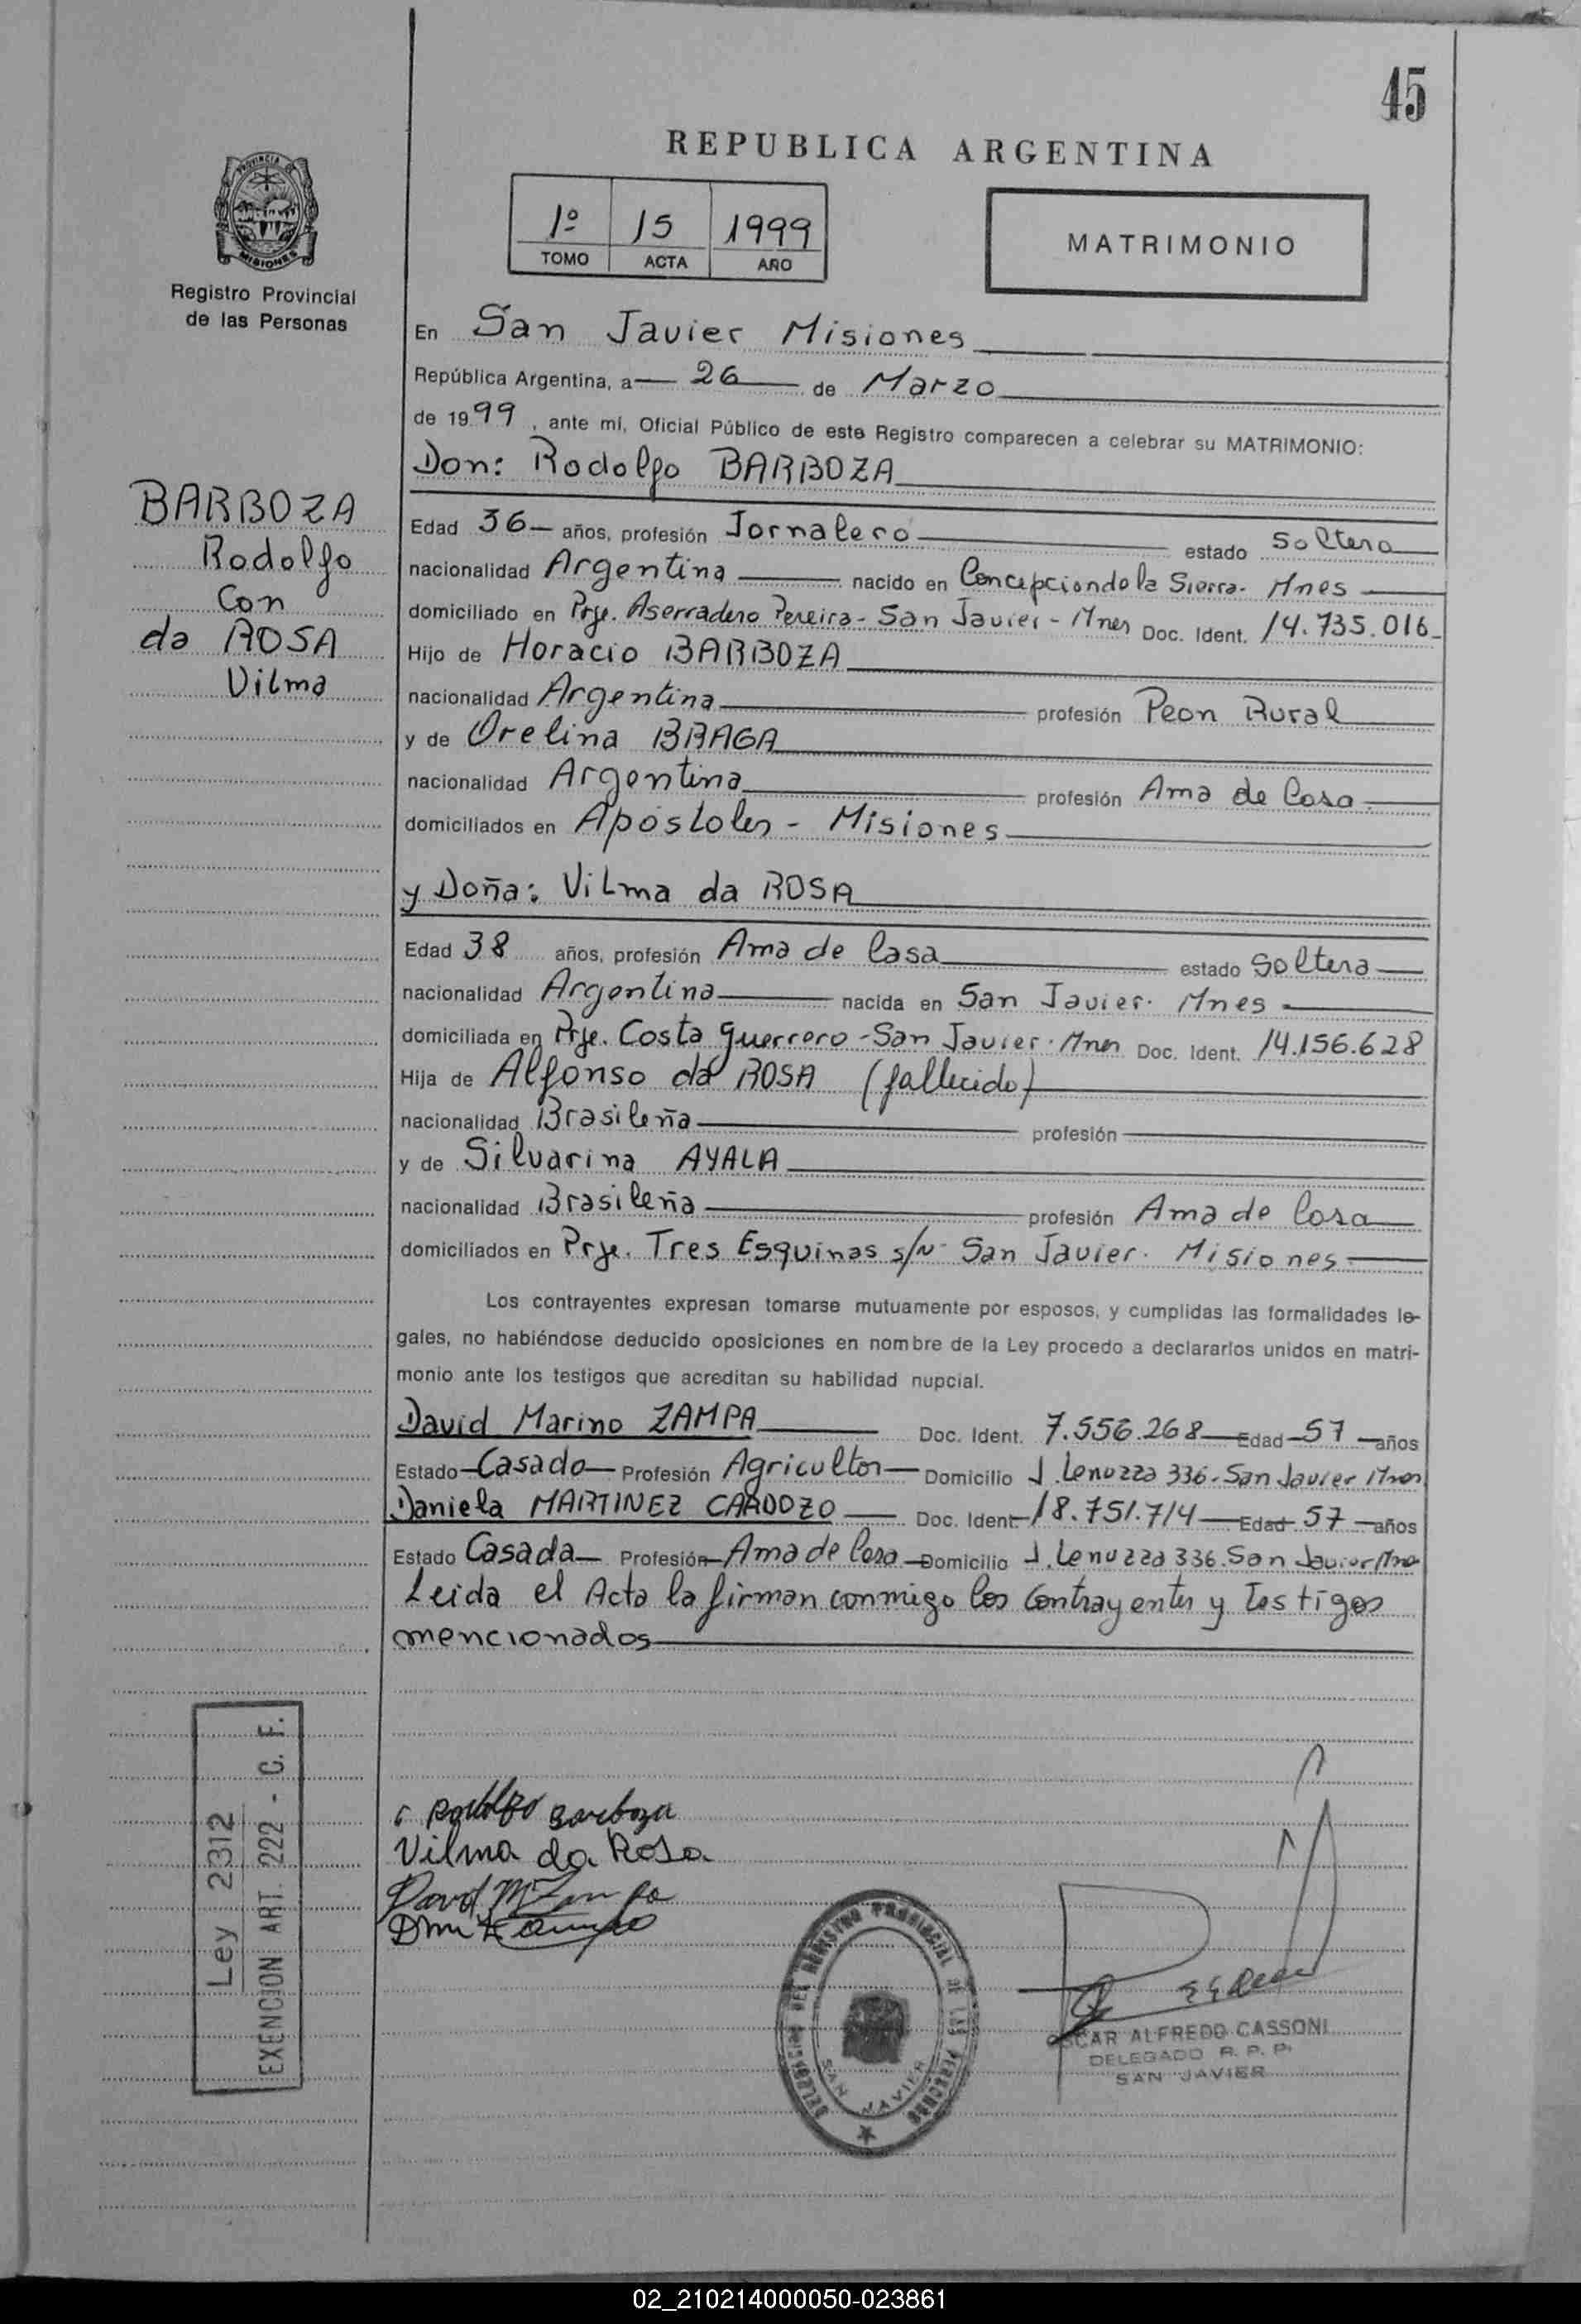 45
REPUBLICA ARGENTINA
PROVINCIA DE
MISIONES
Registro Provincial
de las Personas
1º 15 1999
TOMO ACTA AÑO
MATRIMONIO
En San Javier Misiones
República Argentina, a 26 de Marzo
de 1999, ante mí, Oficial Público de este Registro comparecen a celebrar su MATRIMONIO:
Don: Rodolfo BARBOZA
BARBOZA
Rodolfo
Con
da ROSA
Vilma
Edad 36 años, profesión Jornalero estado soltero
nacionalidad Argentina nacido en Concepcion de la Sierra - Mnes
domiciliado en Prje. Aserradero Pereira - San Javier - Mnes Doc. Ident. 14.735.016
Hijo de Horacio BARBOZA
nacionalidad Argentina profesión Peon Rural
y de Orelina BRAGA
nacionalidad Argentina profesión Ama de Casa
domiciliados en Apóstoles - Misiones
y Doña: Vilma da ROSA
Edad 38 años, profesión Ama de Casa estado Soltera
nacionalidad Argentina nacida en San Javier. Mnes
domiciliada en Prje. Costa Guerrero - San Javier. Mnes Doc. Ident. 14.156.628
Hija de Alfonso da ROSA (fallecido)
nacionalidad Brasileña profesión
y de Silvarina AYALA
nacionalidad Brasileña profesión Ama de Casa
domiciliados en Prje. Tres Esquinas s/n San Javier. Misiones
Los contrayentes expresan tomarse mutuamente por esposos, y cumplidas las formalidades le-
gales, no habiéndose deducido oposiciones en nombre de la Ley procedo a declararlos unidos en matri-
monio ante los testigos que acreditan su habilidad nupcial.
David Marino ZAMPA Doc. Ident. 7.556.268 Edad 57 años
Estado Casado Profesión Agricultor Domicilio J. Lenuzza 336. San Javier Mnes
Daniela MARTINEZ CARDOZO Doc. Ident. 18.751.714 Edad 57 años
Estado Casada Profesión Ama de Casa Domicilio J. Lenuzza 336. San Javier Mnes
Leida el Acta la firman conmigo los Contrayentes y Testigos
mencionados
Ley 2312
EXENCION ART. 222 - C. F.
Rodolfo Barboza
Vilma da Rosa
David M Zampa
DELEGACION DEL REGISTRO PROVINCIAL DE LAS PERSONAS
SAN JAVIER
OSCAR ALFREDO CASSONI
DELEGADO R. P. P.
SAN JAVIER
02_210214000050-023861